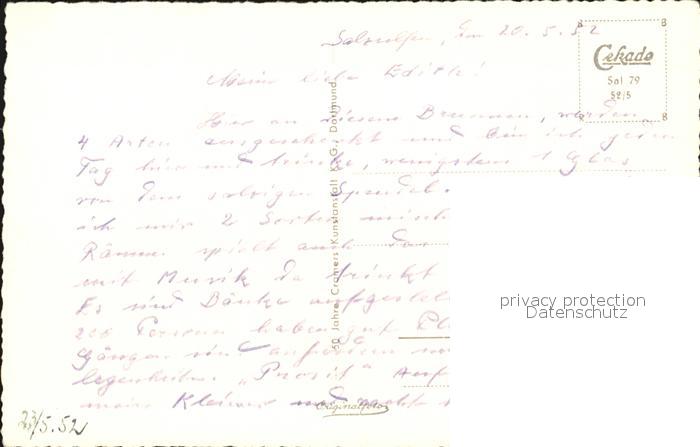 Salzuflen, den 20.5.52
Meine liebe Edith!
Cekade
Sal 79
52/5
Hier an diesem Brunnen, werden
4 Arten ausgeschenkt und bin ich jeden
Tag hier und trinke, wenigstens 1 Glas
von dem salzigen Sprudel.
ich mir 2 Sorten misch
spielt auch das
mit Musik da trinkt
Es sind Bänke aufgestellt
200 Personen haben gut Pl
Gängen sind außerdem
legenheiten. „Prosit" Auf
mein Kleines und
50 Jahre Cramers Kunstanstalt K.G., Dortmund
Originalfoto
privacy protection
Datenschutz
23/5.52